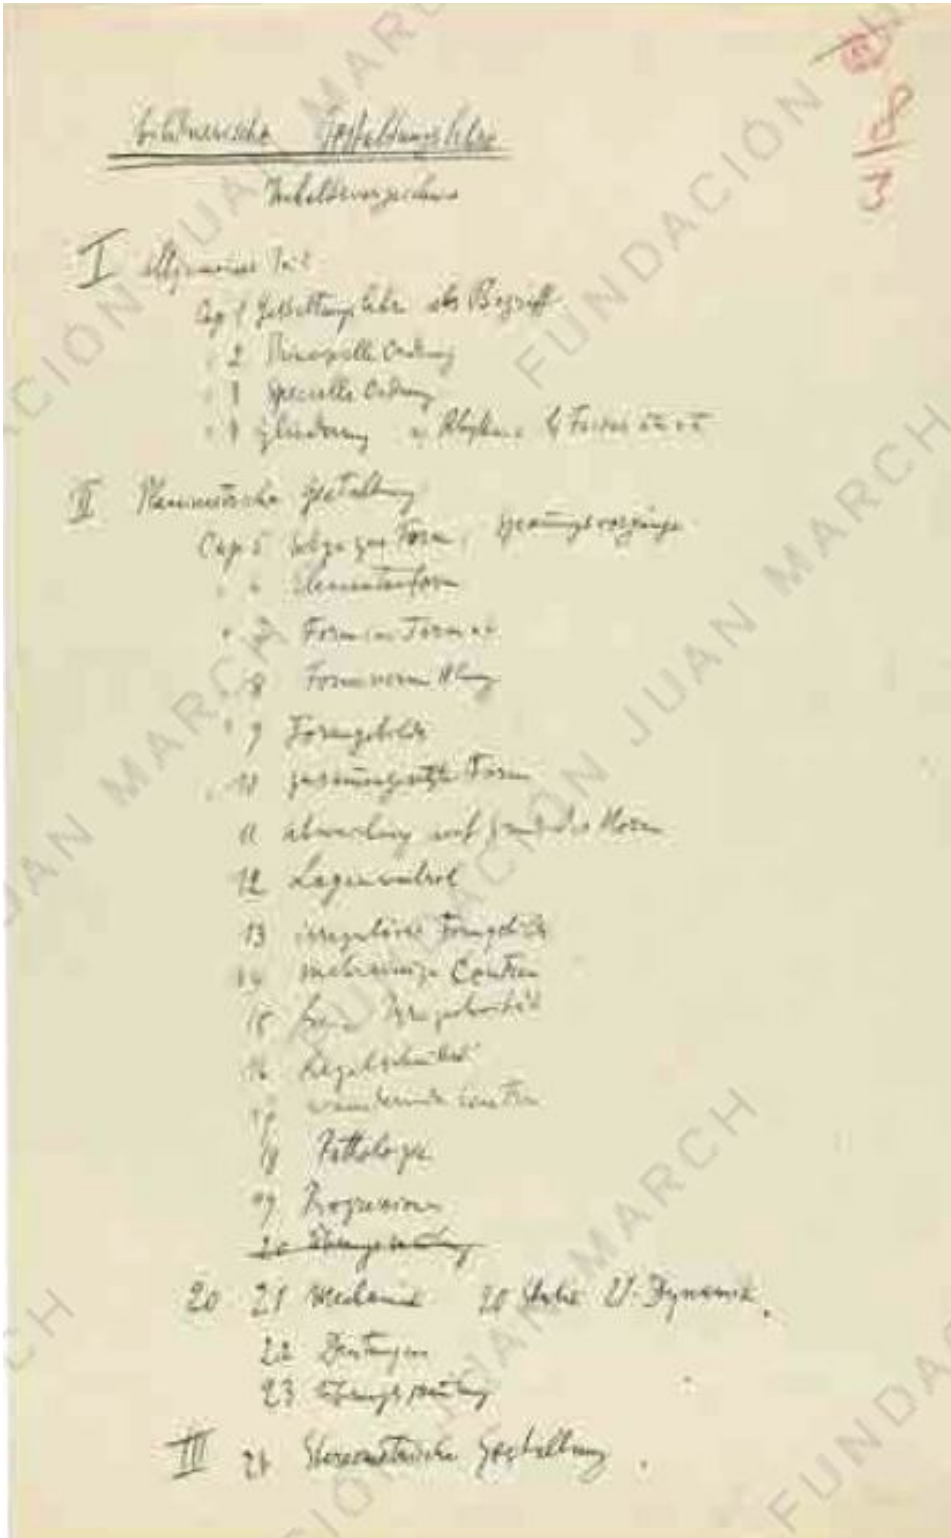 bildnerische Gestaltungslehre
Inhaltsverzeichnis
I allgemeiner Teil
Cap 1 Gestaltungslehre als Begriff
" 2 Principielle Ordnung
" 3 specielle Ordnung
" 4 gliederung
II Planimetrische gestaltung
Cap 5 Wege zur Form,
" 6 Elementarform
" 7 Form im Format
" 8 Formvermittlung
" 9 Formgebilde
" 10 zusammengesetzte Form
11 abweichung auf grund der Norm
12 Lagenwechsel
13 irreguläres Formgebilde
14 mehreinige Centren
15 freie Irregularität
16 Kegelschnitte
17 wandernde Centren
18 Pathologie
19 Progressionen
20
20 21 Mechanik 20 Statik 21 Dynamik
22
23
III 24 Stereometrische gestaltung
8
3
FUNDACIÓN JUAN MARCH